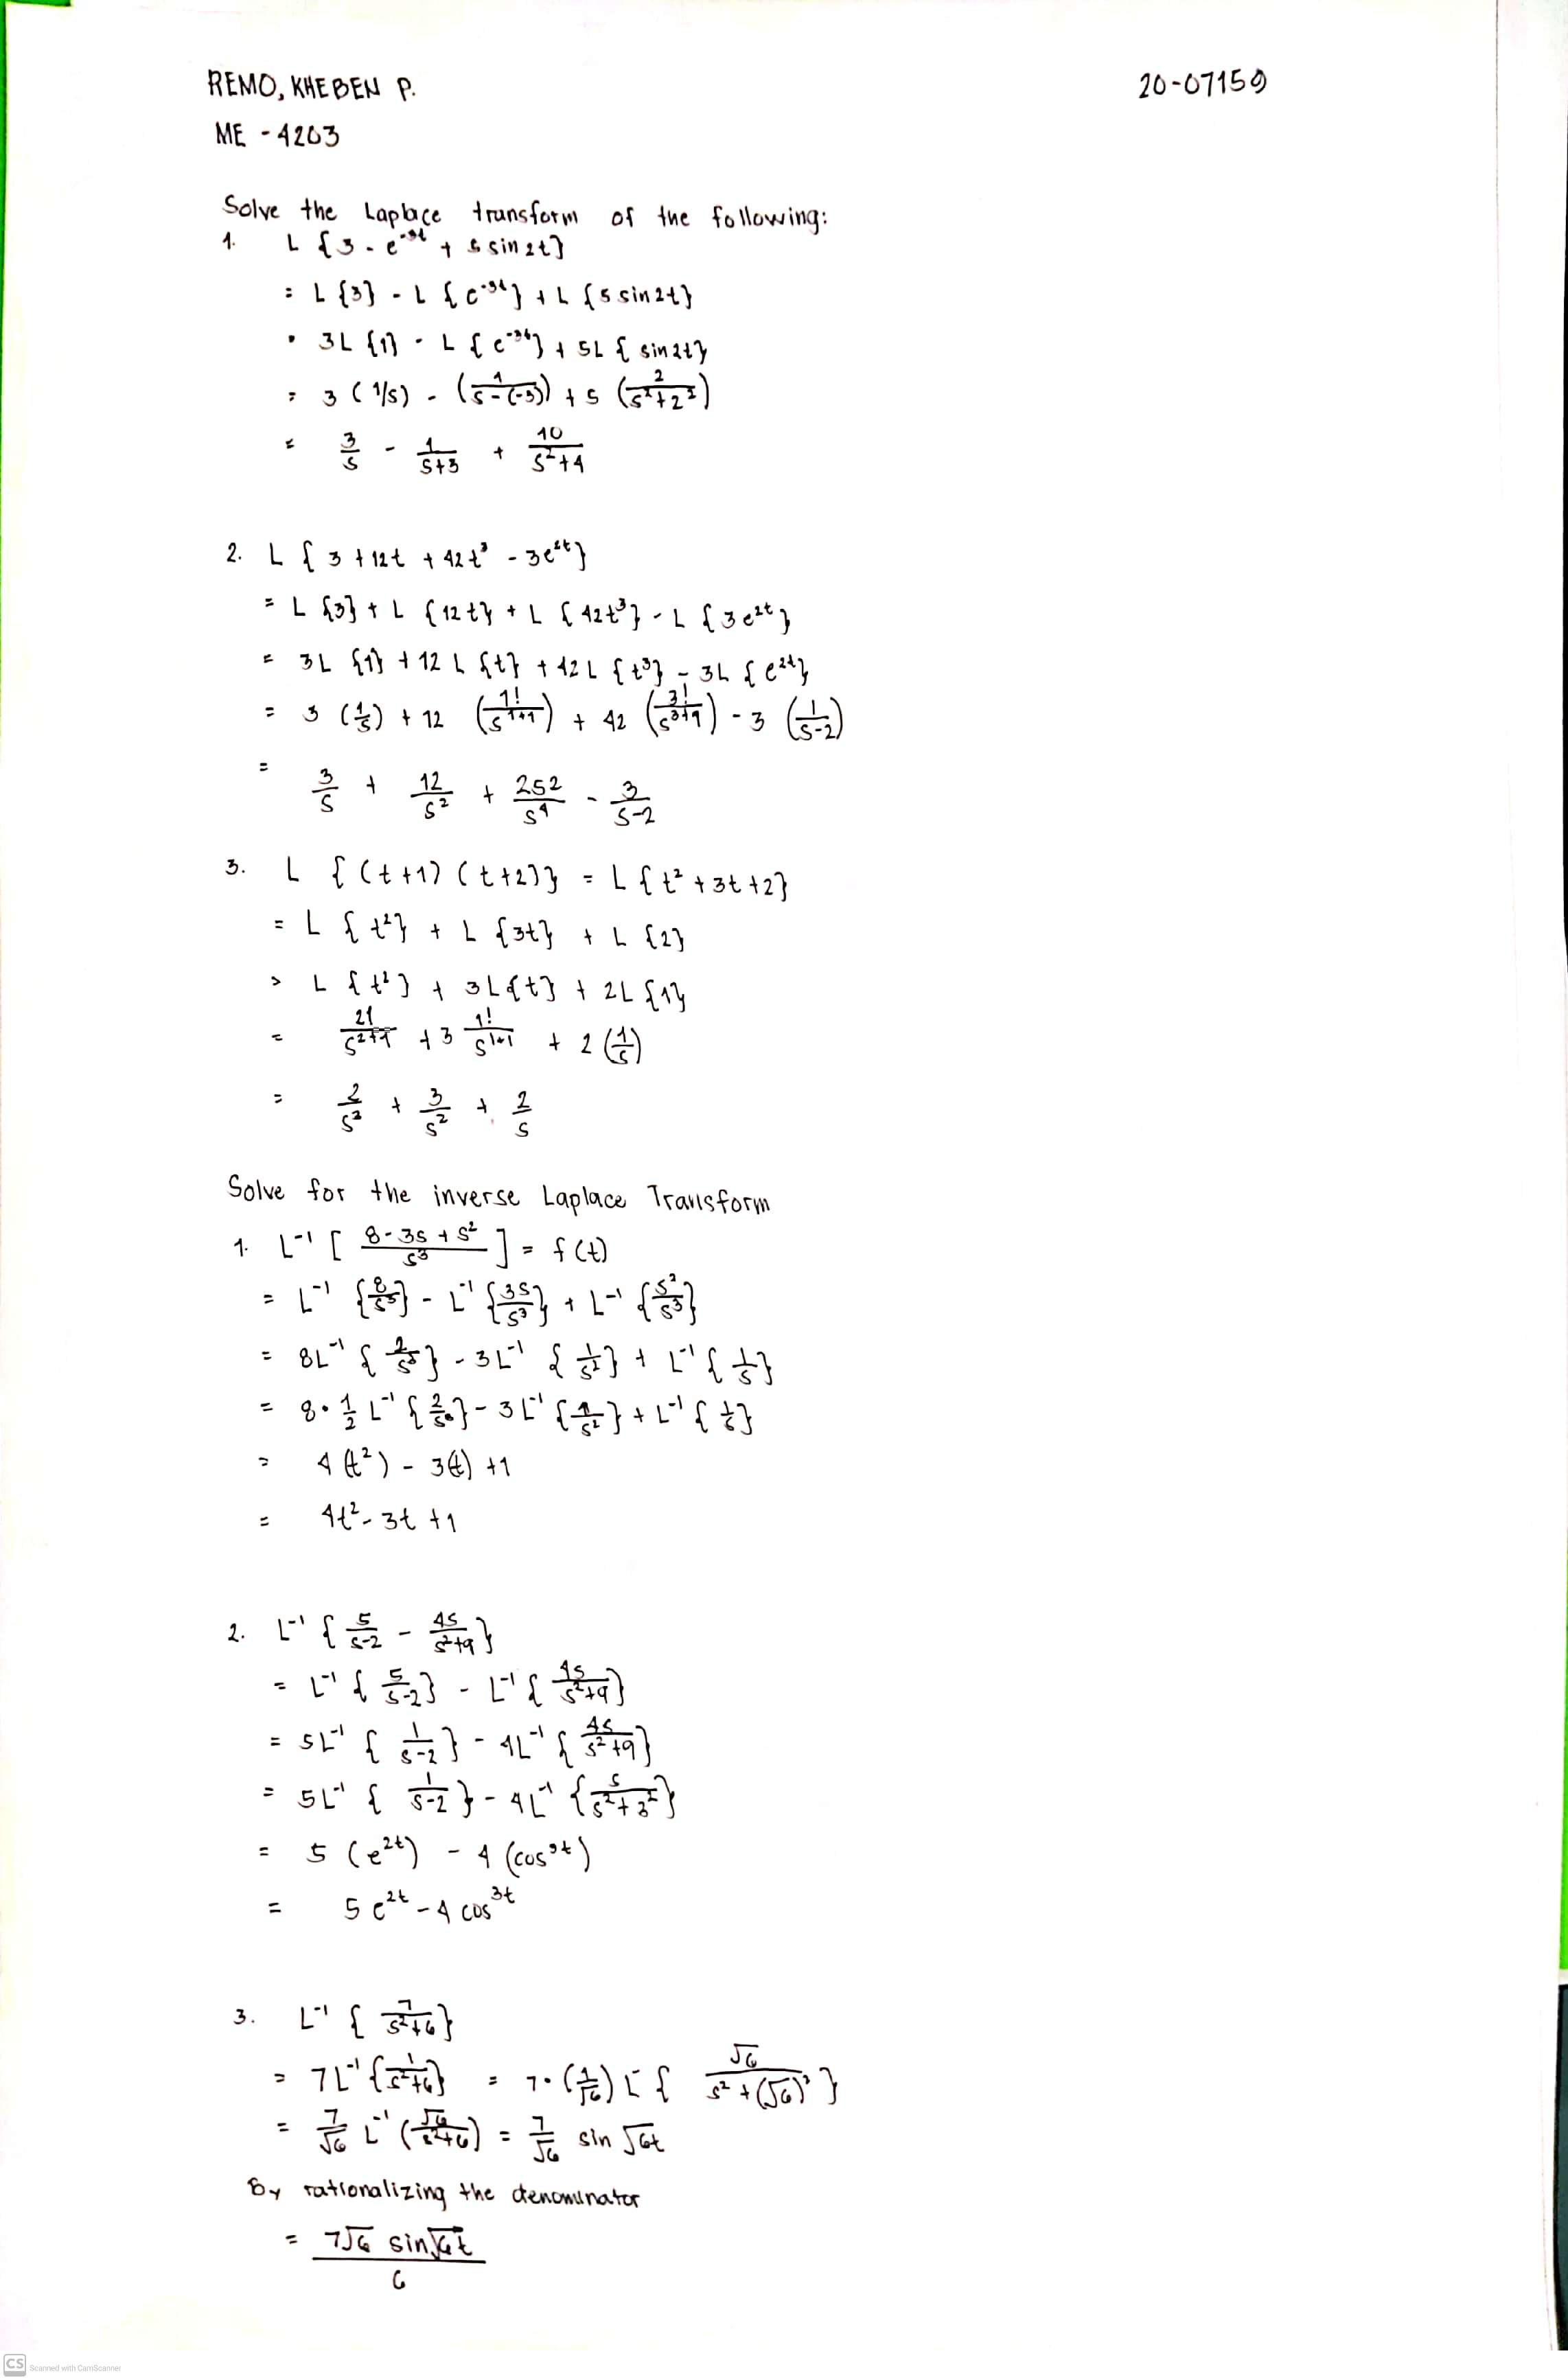 REMO, KHEBEN P. 20-07159
ME - 4203
Solve the Laplace transform of the following:
1. L {3 - e^-3t + 5 sin 2t}
= L {3} - L {e^-3t} + L {5 sin 2t}
= 3L {1} - L {e^-3t} + 5L { sin 2t}
= 3 (1/s) - (1/(s-(-3))) + 5 (2/(s²+2²))
= 3/s - 1/(s+3) + 10/(s²+4)
2. L { 3 + 12t + 42t³ - 3e^2t}
= L {3} + L {12t} + L {42t³} - L {3e^2t}
= 3L {1} + 12 L {t} + 42L {t³} - 3L {e^2t}
= 3 (1/s) + 12 (1!/s^1+1) + 42 (3!/s^3+1) - 3 (1/(s-2))
= 3/s + 12/s² + 252/s⁴ - 3/(s-2)
3. L { (t+1) (t+2)} = L {t² + 3t + 2}
= L {t²} + L {3t} + L {2}
= L {t²} + 3L{t} + 2L {1}
= 2!/s^2+1 + 3 1!/s^1+1 + 2 (1/s)
= 2/s³ + 3/s² + 2/s
Solve for the inverse Laplace Transform
1. L⁻¹ [ (8-3s+s²)/s³ ] = f(t)
= L⁻¹ {8/s³} - L⁻¹ {3s/s³} + L⁻¹ {s²/s³}
= 8L⁻¹ { 2/s³} - 3L⁻¹ { 1/s²} + L⁻¹ {1/s}
= 8 • 1/2 L⁻¹ {2/s³} - 3L⁻¹ {1/s²} + L⁻¹ {1/s}
= 4 (t²) - 3(t) + 1
= 4t² - 3t + 1
2. L⁻¹ { 5/(s-2) - 4s/(s²+9)}
= L⁻¹ { 5/(s-2)} - L⁻¹ { 4s/(s²+9)}
= 5L⁻¹ { 1/(s-2)} - 4L⁻¹ { 4s/(s²+9)}
= 5L⁻¹ { 1/(s-2)} - 4L⁻¹ {s/(s²+3²)}
= 5 (e^2t) - 4 (cos^3t)
= 5e^2t - 4 cos^3t
3. L⁻¹ { 7/(s²+6)}
= 7L⁻¹ {1/(s²+6)} = 7 • (1/√6) L⁻ { √6/(s²+(√6)²) }
= 7/√6 L⁻¹ (√6/(s²+6)) = 7/√6 sin √6t
By rationalizing the denominator
= 7√6 sin√6t / 6
CS Scanned with CamScanner